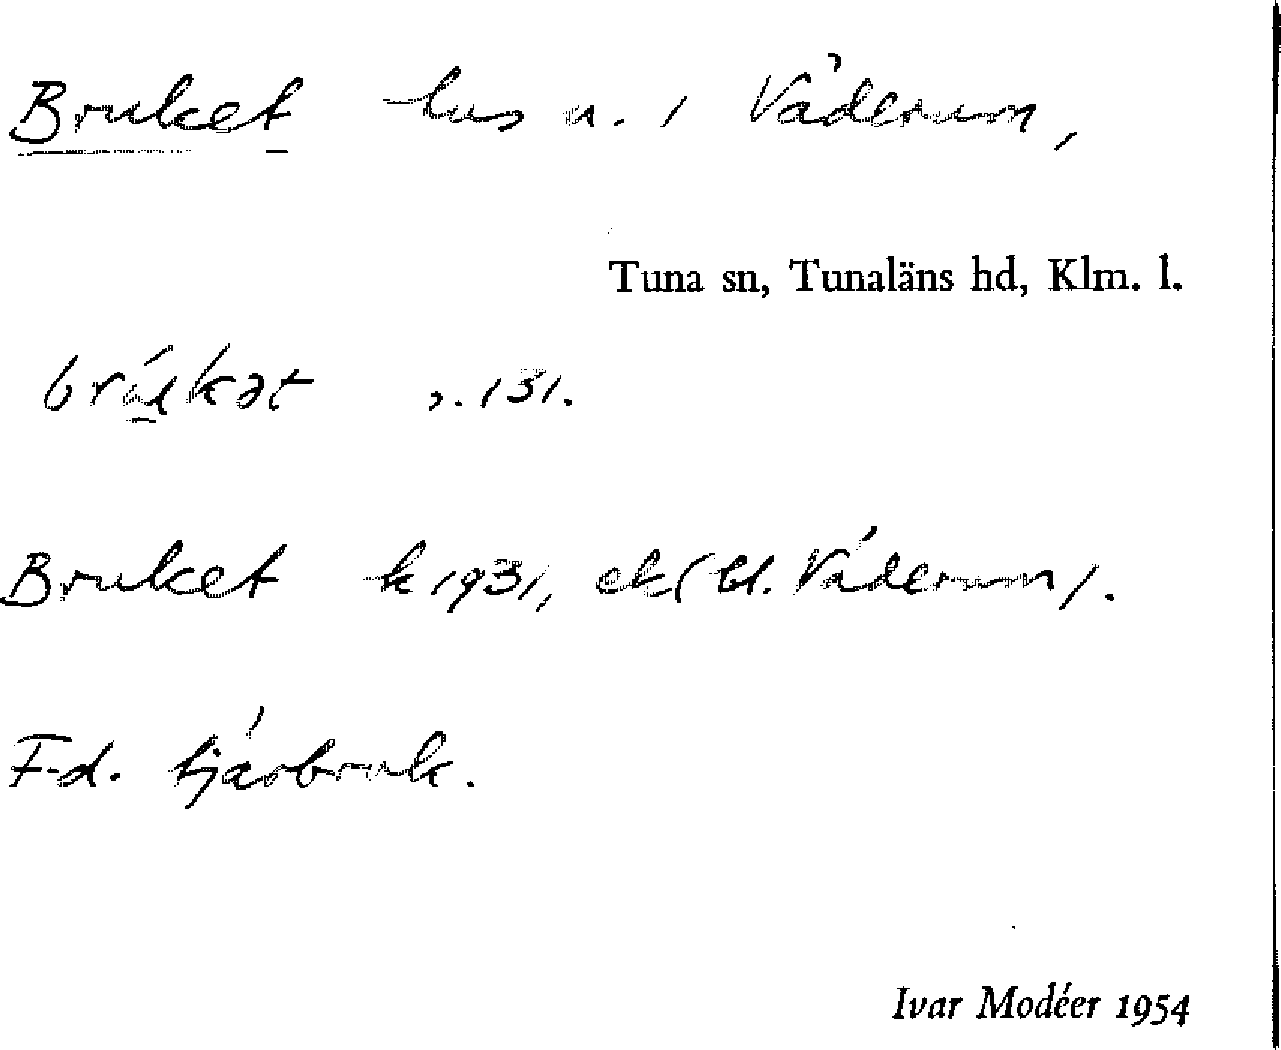 Bruket hus n. i Väderum,
Tuna sn, Tunaläns hd, Klm. l.
brúkət s. 131.
Bruket k 1931, ek (Väderum).
F.d. tjärbruk.
Ivar Modéer 1954